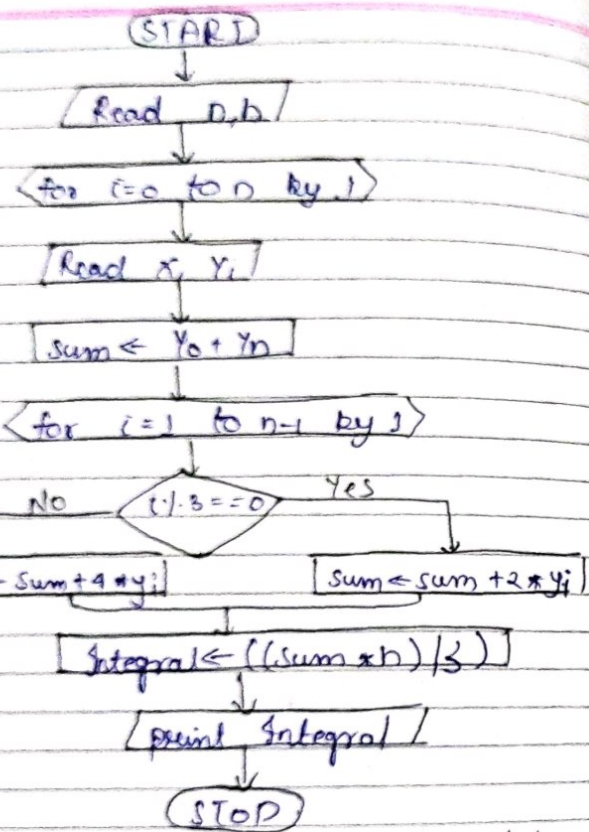 START
Read n,h
for i=0 to n by 1
Read x, Yi
Sum ← Y0 + Yn
for i=1 to n-1 by 1
No
i%3==0
Yes
- Sum+4*yi
Sum←sum+2*yi
Integral←((sum*h)/3)
print Integral
STOP